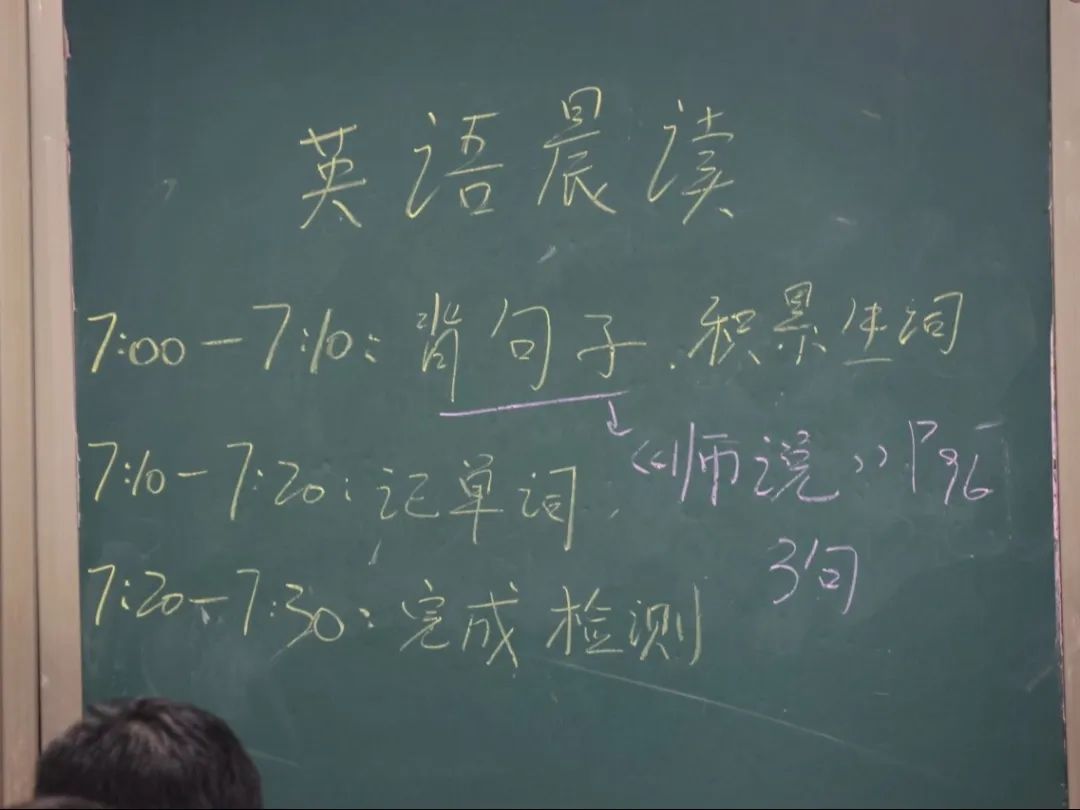 英语晨读
7:00-7:10:背句子.积累生词
7:10-7:20:记单词.
《师说》P96
3句
7:20-7:30:完成检测